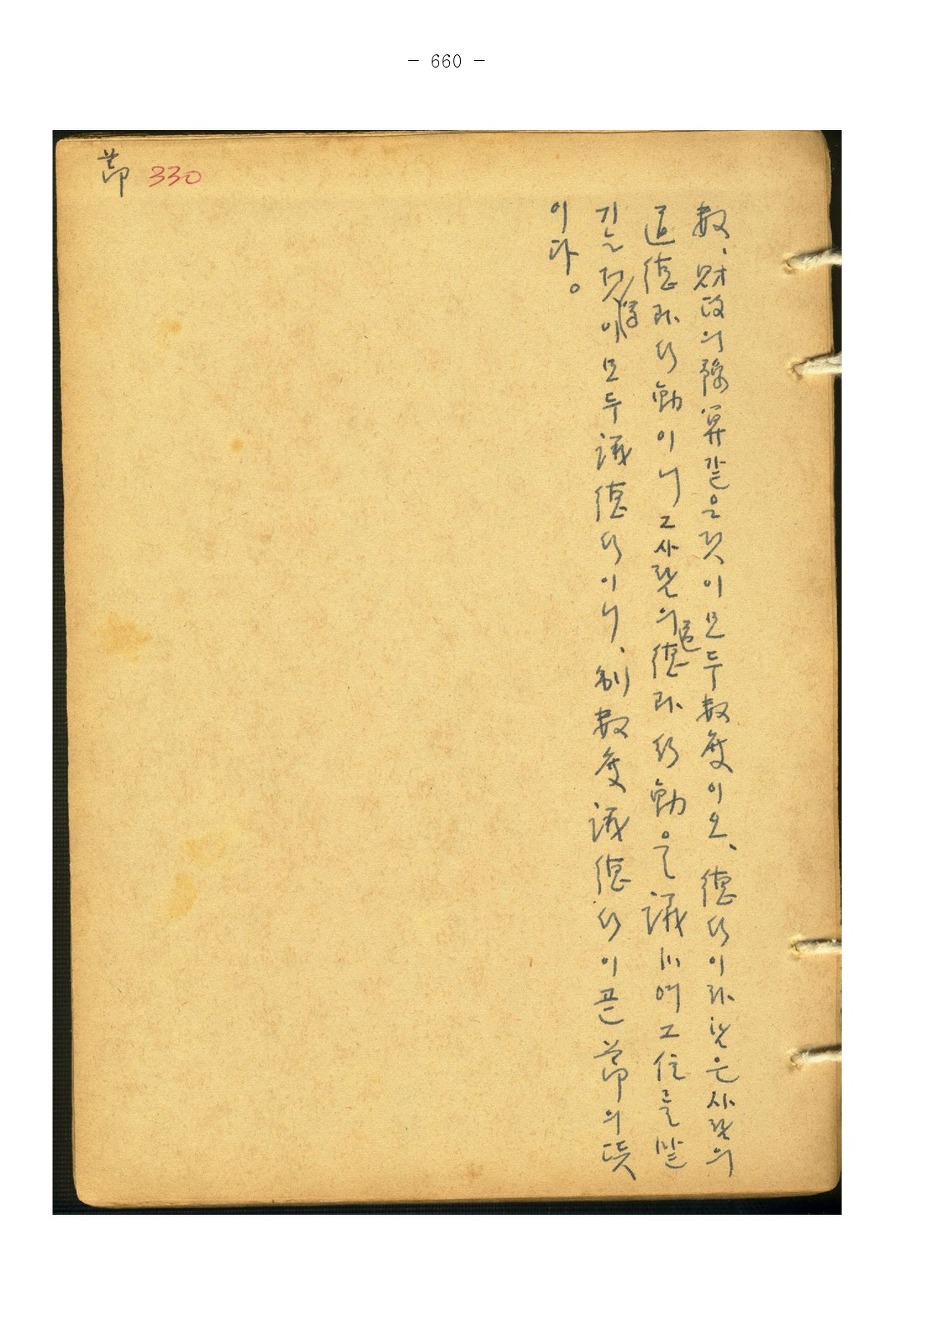 - 660 -
節 330
数、財政의豫算같은것이모두数度이오、德行이라함은사람의
道德과行動이니그사람의道德과行動을議하여그位를맡
기는것等이모두議德行이니、制数度議德行이곧節의뜻
이다。